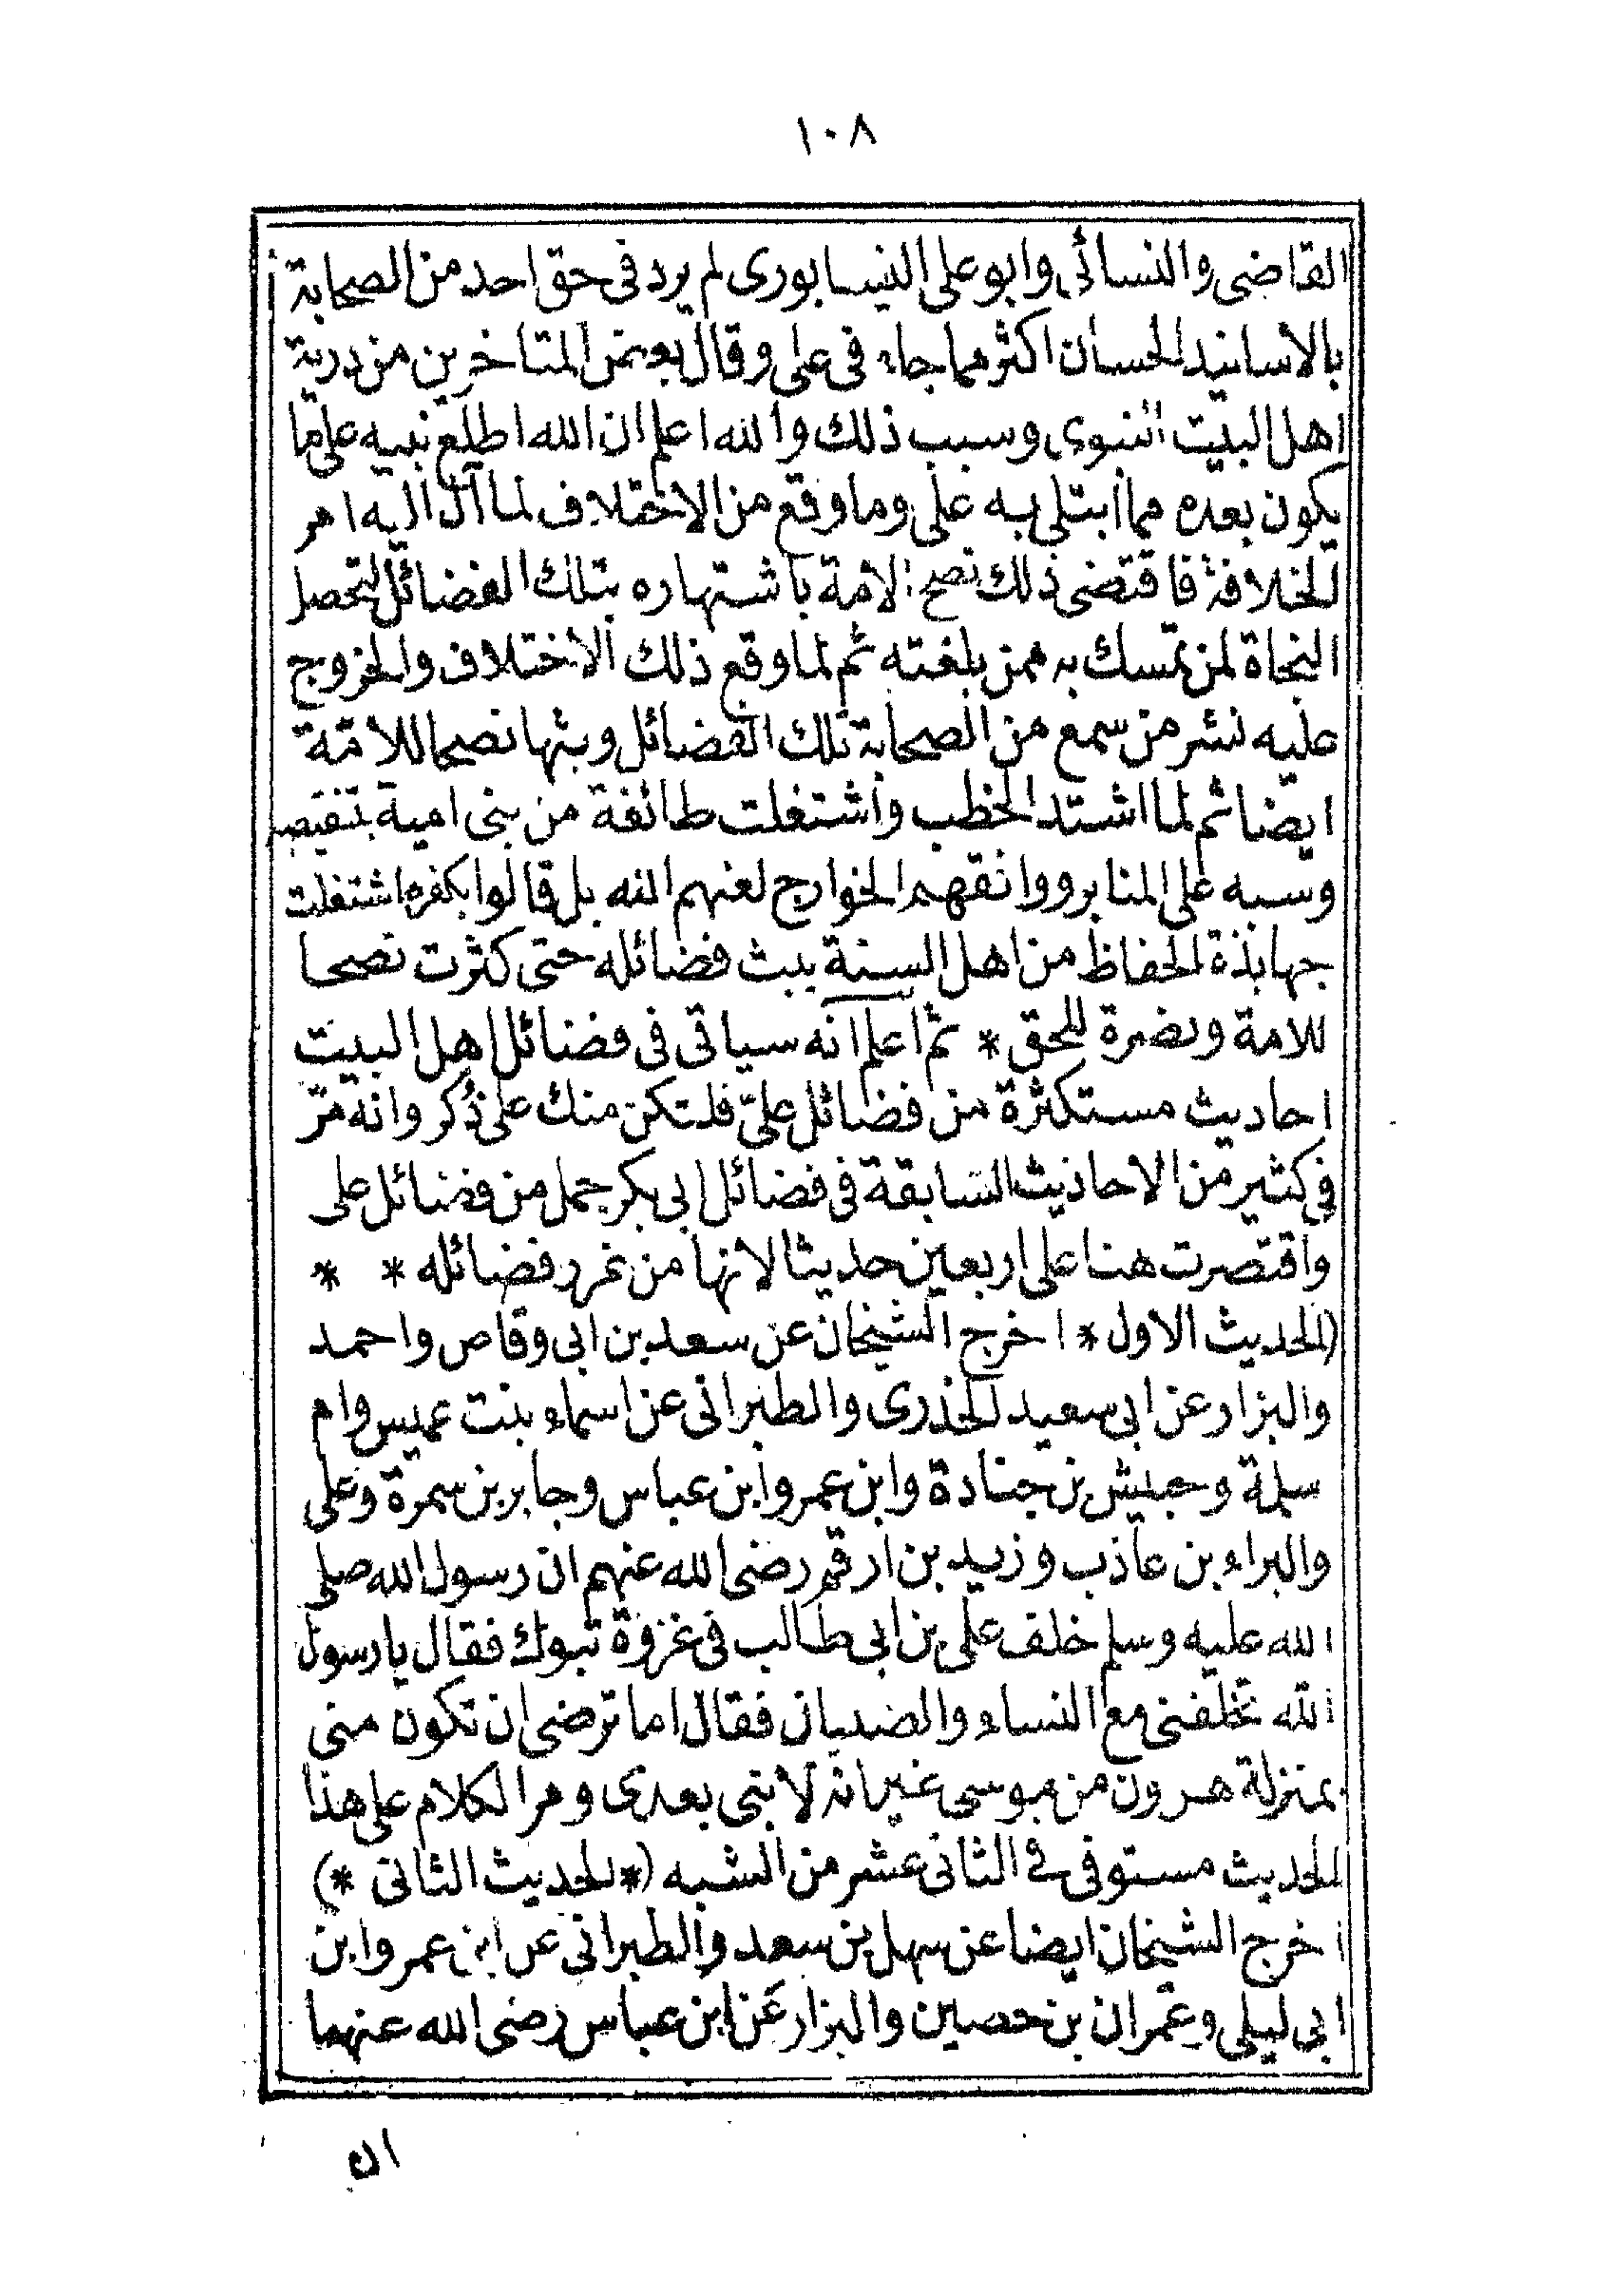 ١٠٨
القاضى والنسائى وابو على النيسابورى لم يرد فى حق احد من الصحابة
بالاسانيد الحسان اكثر مما جاء فى على وقال بعض المتاخرين من ذرية
اهل البيت النبوى وسبب ذلك والله اعلم ان الله اطلع نبيه على ما
يكون بعده مما ابتلى به على وما وقع من الاختلاف لما آل اليه امر
الخلافة فاقتضى ذلك نصح الامة باشتهاره بتلك الفضائل لتحصل
النجاة لمن تمسك به ممن بلغته ثم لما وقع ذلك الاختلاف والخروج
عليه نشر من سمع من الصحابة تلك الفضائل وبثها نصحا للامّة
ايضا ثم لما اشتد الخطب واشتغلت طائفة من بنى امية بتنقيصه
وسبه على المنابر ووافقهم الخوارج لعنهم الله بل قالوا بكفره اشتغلت
جهابذة الحفاظ من اهل السنة ببث فضائله حتى كثرت نصحا
للامة ونصرة للحق * ثم اعلم انه سياتى فى فضائل اهل البيت
احاديث مستكثرة من فضائل علىّ فلتكن منك على ذُكر وانه مرّ
فى كثير من الاحاديث السابقة فى فضائل ابى بكر جمل من فضائل على
واقتصرت هنا على اربعين حديثا لانها من غرر فضائله * *
(الحديث الاول * اخرج الشيخان عن سعد بن ابى وقاص واحمد
والبزار عن ابى سعيد الخذرى والطبرانى عن اسماء بنت عميس وام
سلمة وحبيش بن جنادة وابن عمر وابن عباس وجابر بن سمرة وعلى
والبراء بن عاذب وزيد بن ارقم رضى الله عنهم ان رسول الله صلى
الله عليه وسلم خلف على بن ابى طالب فى غزوة تبوك فقال يا رسول
الله تخلفنى مع النساء والصبيان فقال اما ترضى ان تكون منى
بمنزلة هرون من موسى غير انه لا نبى بعدى ومر الكلام على هذا
الحديث مستوفى فى الثانى عشر من الشبه (* الحديث الثانى *)
اخرج الشيخان ايضا عن سهل بن سعد والطبرانى عن ابن عمر وابن
ابى ليلى وعمران بن حصين والبزار عن ابن عباس رضى الله عنهما
ان